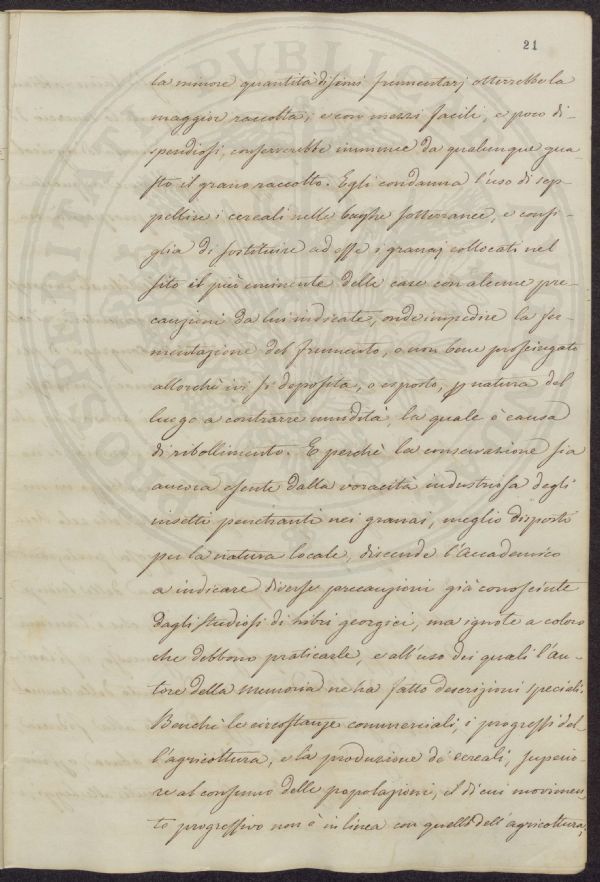 21
la minore quantità di semi frumentarj otterrebbe la
maggior raccolta; e con mezzi facili, e poco di-
spendiosi, conserverebbe immune da qualunque gua-
sto il grano raccolto. Egli condanna l'uso di sep-
pellire i cereali nelle buche sotterranee, e consi-
glia di sostituire ad esse i granaj collocati nel
sito il più eminente delle case con alcune pre-
cauzioni da lui indicate, onde impedire la fer-
mentazione del frumento, o non bene prosciugato
allorchè ivi si deposita, o esposto, p natura del
luogo a contrarre umidità, la quale è causa
di ribollimento. E perchè la conservazione sia
ancora esente dalla voracità industriosa degli
insetti penetranti nei granai, meglio disposti
per la natura locale, discende l'Accademico
a indicare diverse precauzioni già conosciute
dagli studiosi di libri georgici, ma ignote a coloro
che debbono praticarle, e all'uso dei quali l'au-
tore della Memoria ne ha fatto descrizioni speciali.
Benchè le circostanze commerciali, i progressi del-
l'agricoltura, e la produzione de' cereali, superio-
re al consumo delle popolazioni, il di cui movimen-
to progressivo non è in linea con quello dell'agricoltura,